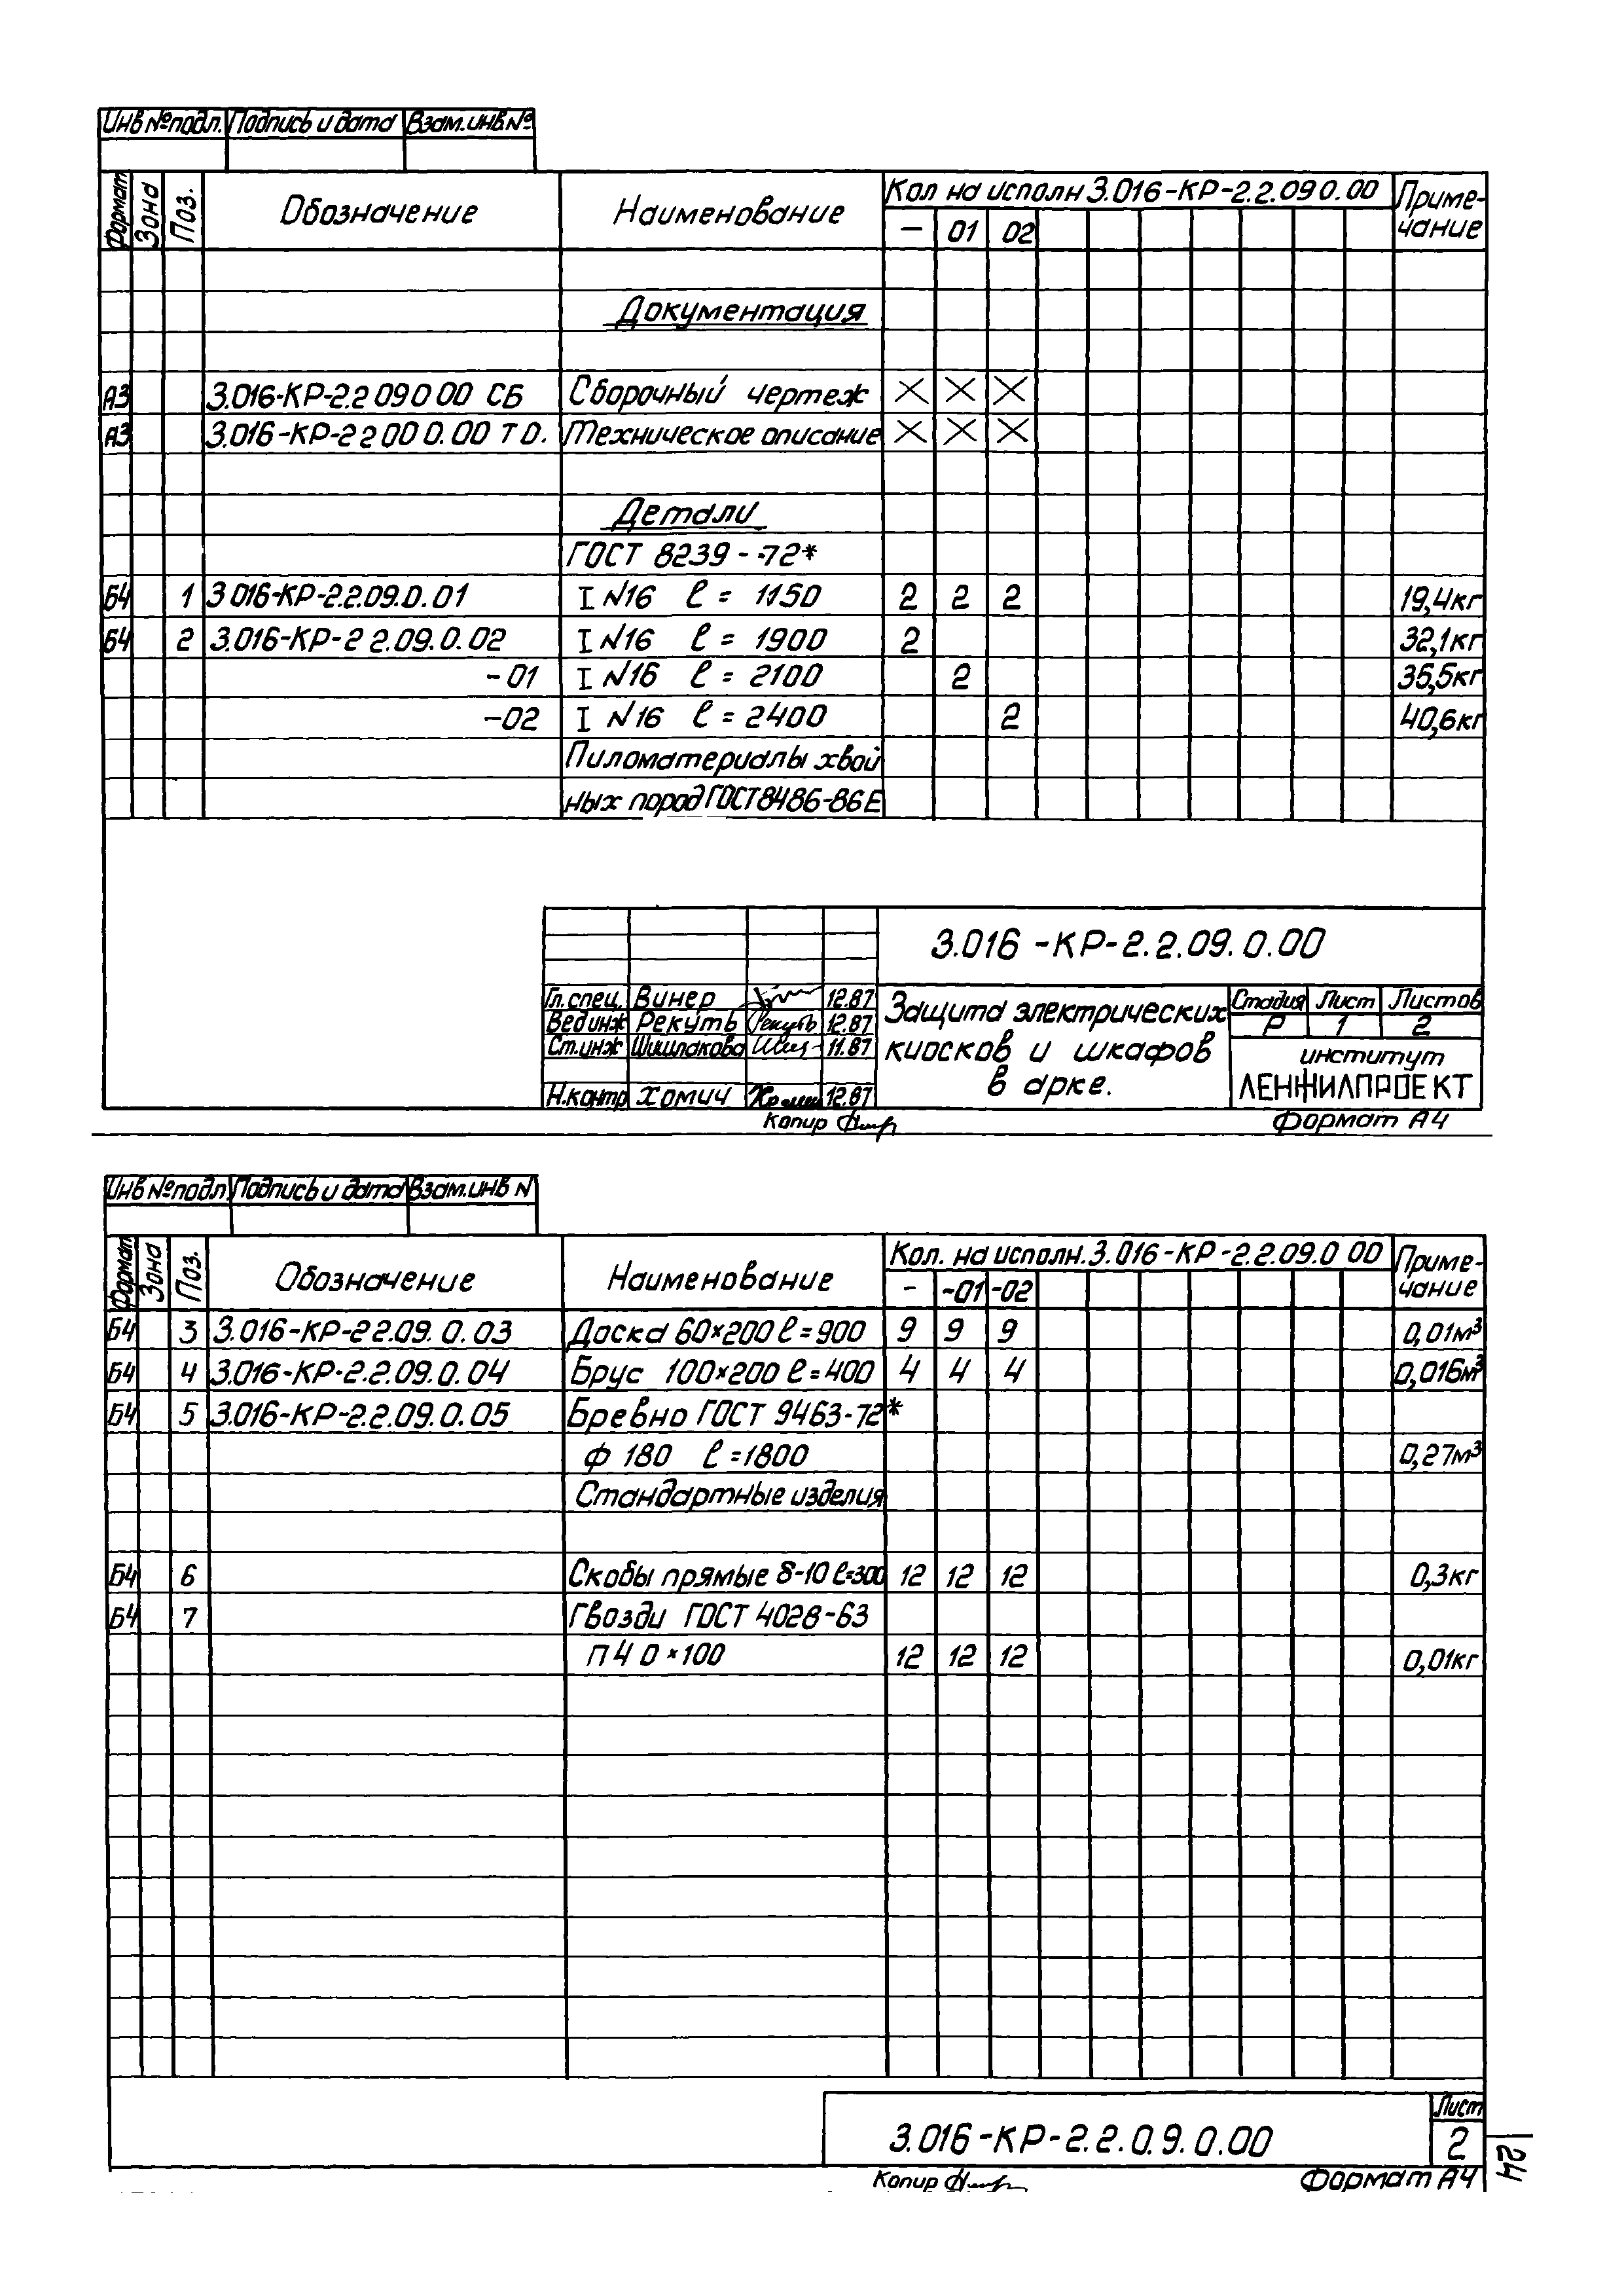 Инв № подл. Подпись и дата Взам. инв. №
Формат Зона Поз. Обозначение Наименование Кол на исполн 3.016-КР-2.2.090.00 Приме-
чание
— 01 02
Документация
А3 3.016-КР-2.2 090 00 СБ Сборочный чертеж X X X
А3 3.016-КР-2 2 00 0.00 Т О. Техническое описание X X X
Детали
ГОСТ 8239 - 72*
Б4 1 3 016-КР-2.2.09.0.01 I N16 ℓ = 1150 2 2 2 19,4кг
Б4 2 3.016-КР-2 2.09.0.02 I N16 ℓ = 1900 2 32,1кг
-01 I N16 ℓ = 2100 2 35,5кг
-02 I N16 ℓ = 2400 2 40,6кг
Пиломатериалы хвой
ных пород ГОСТ 8486-86Е
3.016 -КР-2.2.09.0.00
Гл. спец. Винер 12.87
Вед инж Рекуть Рекуть 12.87
Ст. инж Шишлакова 11.87
Н. контр Хомич 12.87
Защита электрических
киосков и шкафов
в арке.
Стадия Лист Листов
Р 1 2
институт
ЛЕНЖИЛПРОЕКТ
Копир Формат А4
Инв № подл Подпись и дата Взам. инв N
Формат Зона Поз. Обозначение Наименование Кол. на исполн. 3.016-КР-2.2.09.0 00 Приме-
чание
- -01 -02
Б4 3 3.016-КР-2 2.09. 0.03 Доска 60×200 ℓ=900 9 9 9 0,01м³
Б4 4 3.016-КР-2.2.09.0.04 Брус 100×200 ℓ=400 4 4 4 0,016м³
Б4 5 3.016-КР-2.2.09.0.05 Бревно ГОСТ 9463-72*
ф 180 ℓ=1800 0,27м³
Стандартные изделия
Б4 6 Скобы прямые 8-10 ℓ=300 12 12 12 0,3кг
Б4 7 Гвозди ГОСТ 4028-63
П 4 0×100 12 12 12 0,01кг
3.016-КР-2.2.0.9.0.00
Лист
2
24
Копир Формат А4